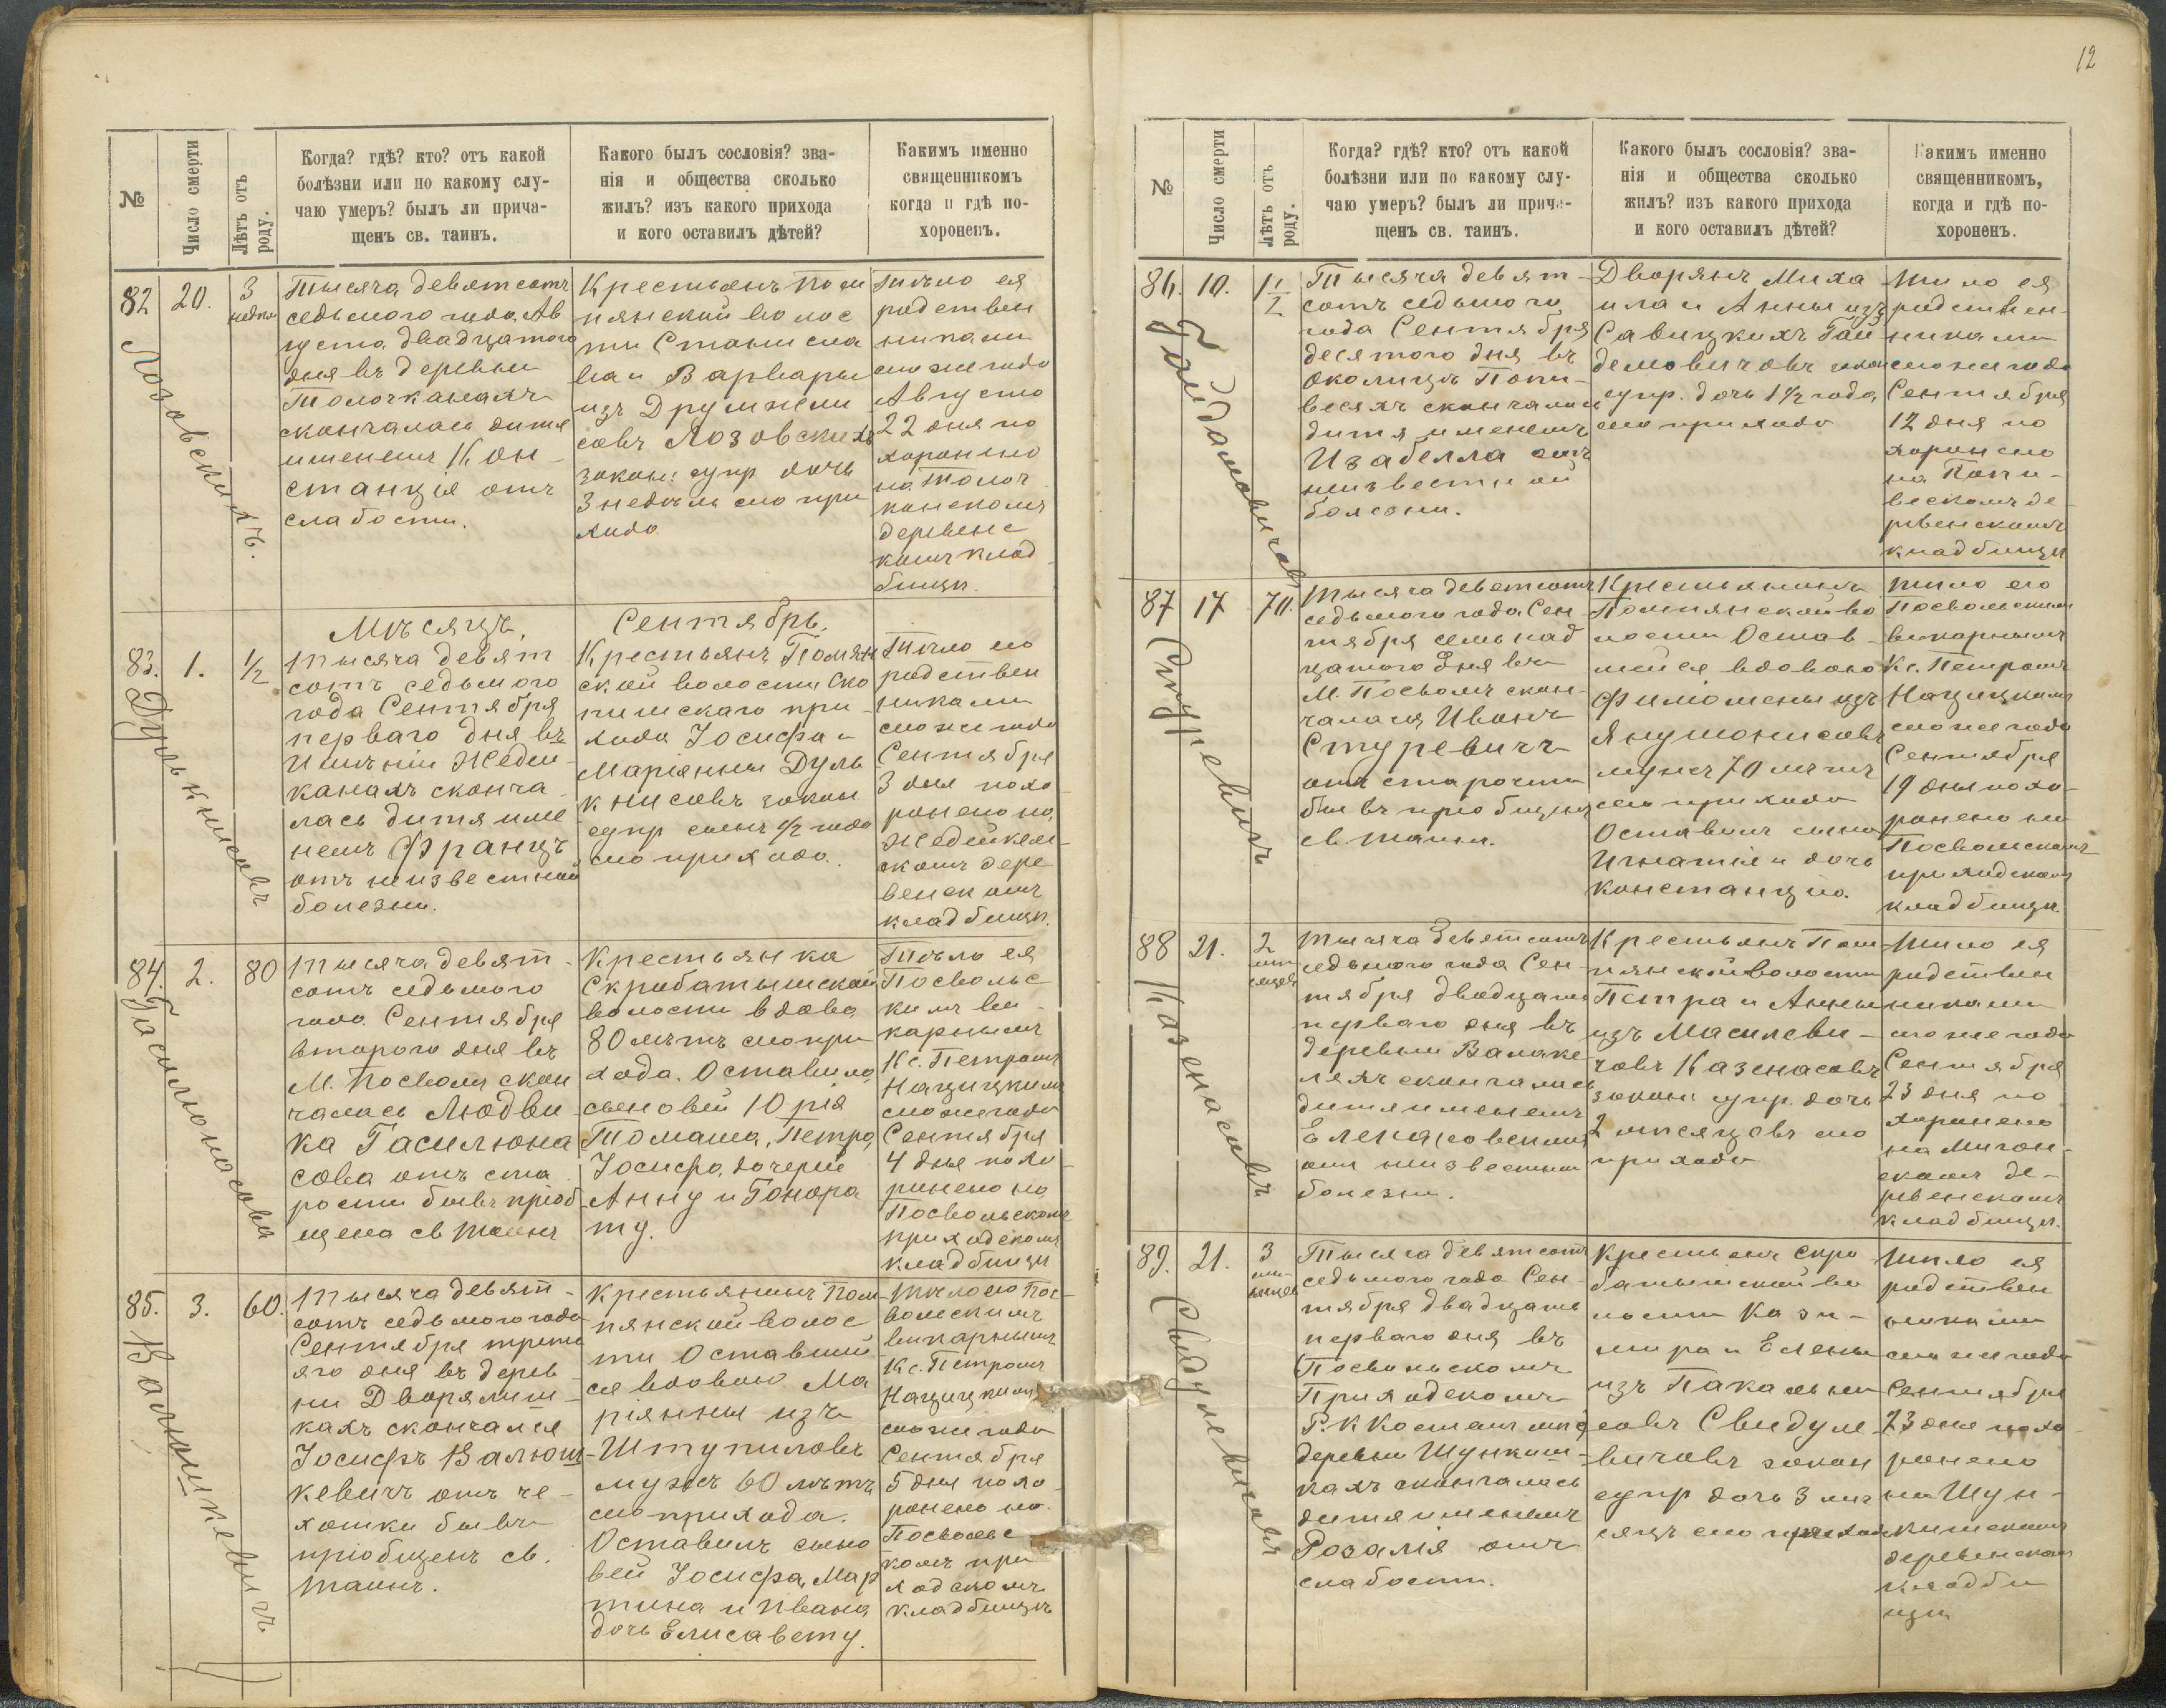 12
№
Число смерти
Лѣтъ отъ роду.
Когда? гдѣ? кто? отъ какой
болѣзни или по какому слу-
чаю умеръ? былъ ли прича-
щенъ св. таинъ.
Какого былъ сословія? зва-
нія и общества сколько
жилъ? изъ какого прихода
и кого оставилъ дѣтей?
Какимъ именно
священникомъ
когда и гдѣ по-
хороненъ.
82
20.
3
недѣли
Лозовскихъ.
Тысяча девятсотъ
седьмого года Ав
густа двадцатого
дня въ деревни
Толочканахъ
скончалась дитя
именемъ Кон-
станція отъ
слабости.
Крестьянъ Пом
пянской волос
ти Станисла
ва и Варвары
изъ Друмжели
совъ Лозовскихъ
закон: супр дочь
3 недѣль сго при
хода
Тѣло ея
родствен
никами
сгоже года
Августа
22 дня по
хоронено
на Толоч
канскомъ
деревенс
комъ клад
бищѣ.
Мѣсяцъ,
Сентябрь.
83.
1.
1/2
Дулькнисовъ
Тысяча девят
сотъ седьмого
года Сентября
перваго дня въ
Имѣніи Жедей
канахъ сконча
лась дитя име
немъ Францъ
отъ неизвестной
болезни.
Крестьянъ Помпян
ской волости Ско
пишскаго при-
хода Іосифа и
Маріянны Дуль
книсовъ закон
супр сынъ 1/2 года
сго прихода.
Тѣло его
родствен
никами
сгоже года
Сентября
3 дня похо
ронено на
Жедейкан
скомъ дере
венскомъ
кладбищѣ.
84.
2.
80
Гасилюнасова
Тысяча девят-
сотъ седьмого
года Сентября
второго дня въ
М. Посволи скон
чалась Людви
ка Гасилюна
сова отъ ста
рости бывъ пріоб
щена св таинъ
Крестьянка
Скробатышской
волости вдова
80 лѣтъ сго при
хода. Оставила
сыновей Юрія
Томаша, Петра,
Іосифа, дочерей
Анну и Гонора
ту.
Тѣло ея
Посвольс
кимъ ви-
карнымъ
Кс. Петромъ
Нацицкимъ
сгоже года
Сентября
4 дня похо
ронено на
Посвольскомъ
приходскомъ
кладбищѣ
85.
3.
60.
Валюшкевичъ
Тысяча девят-
сотъ седьмого года
Сентября треть
яго дня въ дерев-
ни Дворялиш-
кахъ скончался
Іосифъ Валюш
кевичъ отъ че-
хотки бывъ
пріобщенъ св.
таинъ.
Крестьянинъ Пом
пянской волос
ти Оставший
ся вдовою Ма
ріянны изъ
Штупиловъ
мужъ 60 лѣтъ
сго прихода.
Оставилъ сыно
вей Іосифа, Мар
тина и Ивана
дочь Елисавету.
Тѣло его Пос-
вольскимъ
викарнымъ
Кс. Петромъ
Нацицкимъ
сгоже года
Сентября
5 дня похо
ронено на
Посвольс
комъ при
ходскомъ
кладбищѣ
№
Число смерти
Лѣтъ отъ роду.
Когда? гдѣ? кто? отъ какой
болѣзни или по какому слу-
чаю умеръ? былъ ли прича-
щенъ св. таинъ.
Какого былъ сословія? зва-
нія и общества сколько
жилъ? изъ какого прихода
и кого оставилъ дѣтей?
Какимъ именно
священникомъ,
когда и гдѣ по-
хороненъ.
86.
10.
1 1/2
Гайдамовичовъ
Тысяча девят-
сотъ седьмого
года Сентября
десятого дня въ
околицѣ Попи-
весяхъ скончалась
дитя именемъ
Изабелла отъ
неизвестной
болезни.
Дворянъ Миха
ила и Анны изъ
Савицкихъ Гай
демовичовъ закон
супр. дочь 1 1/2 года
сго прихода
Тѣло ея
родствен-
никами
сгоже года
Сентября
12 дня по
хоронено
на Попи-
вескомъ де-
ревенскомъ
кладбищѣ
87
17
70.
Стуревичъ
Тысяча девятсотъ
седьмого года Сен
тября семьнад
цатого дня въ
М. Посволѣ скон-
чался Иванъ
Стуревичъ
отъ старости
бывъ пріобщенъ
св таинъ.
Крестьянинъ
Помпянской во
лости Остав-
шійся вдовою
Филомены изъ
Янушонисовъ
мужъ 70 лѣтъ
сго прихода
Оставилъ сына
Игнатія и дочь
Констанцію.
Тѣло его
Посвольскимъ
викарнымъ
Кс. Петромъ
Нацицкимъ
сгоже года
Сентября
19 дня похо-
ронено на
Посвольскомъ
приходскомъ
кладбищѣ.
88
21.
2
мѣ
сяцевъ
Казенасовъ
Тысяча девятсотъ
седьмого года Сен-
тября двадцать
перваго дня въ
деревни Валаке
ляхъ скончалась
дитя именемъ
Елена
отъ неизвестной
болезни.
Крестьянъ Пом
пянской волости
Петра и Анны
изъ Масилеви-
човъ Казенасовъ
закон: супр. дочь
2 мѣсяцовъ сго
прихода
Тѣло ея
родствен
никами
сгоже года
Сентября
23 дня по
хоронено
на Мигон-
скомъ де-
ревенскомъ
кладбищѣ.
89.
21.
3
мѣ
сяцевъ
Свидулевичовъ
Тысяча девятсотъ
седьмого года Сен-
тября двадцать
перваго дня въ
Посвольскомъ
Приходскомъ
Р. К Костелѣ
деревни Шункиш-
кахъ скончалась
дитя именемъ
Розалія отъ
слабости.
Крестьянъ Скро
батышской во
лости Кази-
мира и Елены
изъ Пакальни
совъ Свидуле
вичовъ закон
супр дочь 3 мѣ
сяцъ сго прихода
Тѣло ея
родствен
никами
сгоже года
Сентября
23 дня похо
ронено
на Шун-
кишскомъ
деревенскомъ
кладби
щѣ